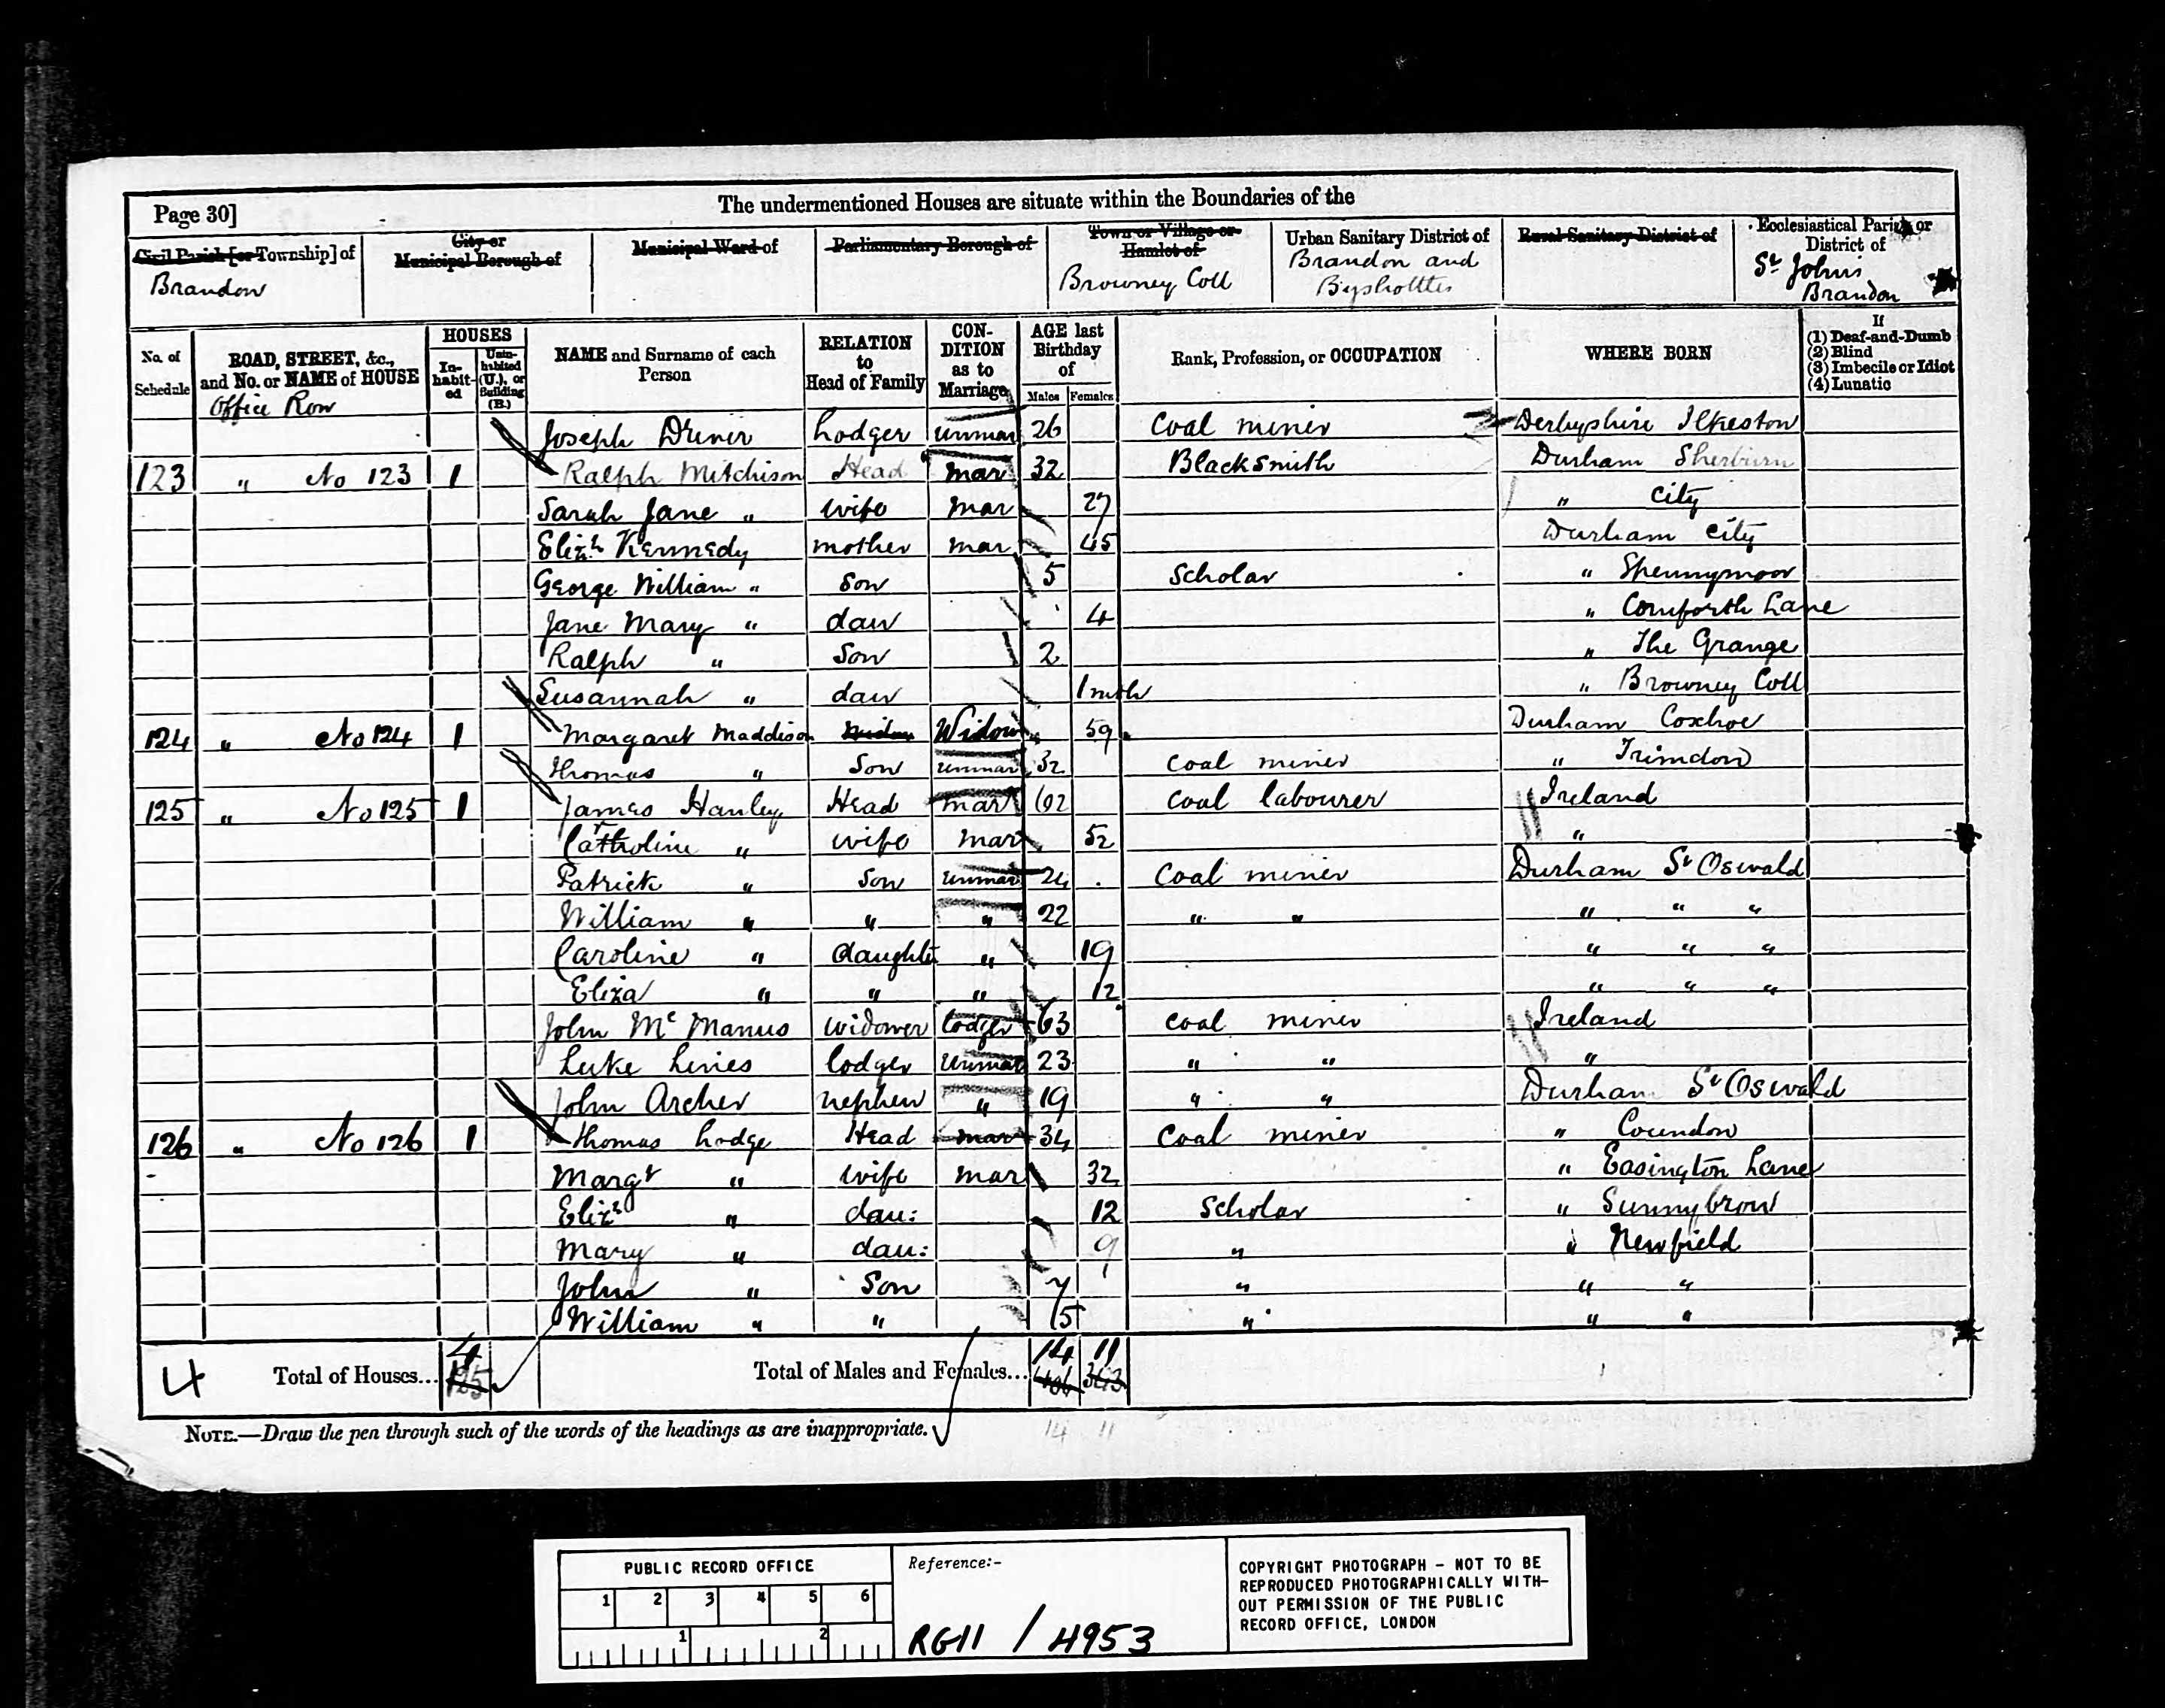 Page 30]
The undermentioned Houses are situate within the Boundaries of the
Civil Parish [or Township] of
Brandon
City or
Municipal Borough of
Municipal Ward of
Parliamentary Borough of
Town or Village or
Hamlet of
Browney Coll
Urban Sanitary District of
Brandon and
Byshottles
Rural Sanitary District of
Ecclesiastical Parish or
District of
St Johns
Brandon
No. of Schedule
ROAD, STREET, &c., and No. or NAME of HOUSE
HOUSES
In-habit-ed
Unin-habited (U.), or Building (B.)
NAME and Surname of each Person
RELATION to Head of Family
CON-DITION as to Marriage
AGE last Birthday of
Males Females
Rank, Profession, or OCCUPATION
WHERE BORN
If
(1) Deaf-and-Dumb
(2) Blind
(3) Imbecile or Idiot
(4) Lunatic
Office Row
Joseph Lodger unmar 26 Coal miner Derbyshire Ilkeston
123 " No 123 1 Ralph Mitchison Head mar 32 Blacksmith Durham Sherburn
Sarah Jane " wife mar 27 " City
Elizh Kennedy mother mar 45 Durham City
George William " Son 5 Scholar " Spennymoor
Jane Mary " daw 4 " Cornforth Lane
Ralph " Son 2 " The Grange
Susannah " daw 1 mth " Browney Coll
124 " No 124 1 Margaret Maddison Widow Widow 59 Durham Coxhoe
Thomas " Son unmar 32 Coal miner " Trimdon
125 " No 125 1 James Hanley Head mar 62 Coal labourer Ireland
Catholine " wife mar 52 "
Patrick " Son unmar 24 Coal miner Durham St Oswald
William " " " 22 " " " " "
Caroline " daughter " 19 " " "
Eliza " " " 12 " " "
John Mc Manus widower lodger 63 Coal miner Ireland
Luke Lines lodger unmar 23 " " "
John Archer nephew " 19 " " Durham St Oswald
126 " No 126 1 Thomas Lodge Head mar 34 Coal miner " Coundon
Margt " wife mar 32 " Easington Lane
Elizh " dau: 12 Scholar " Sunnybrow
Mary " dau: 9 " " Newfield
John " Son 7 " " "
William " " 5 " " "
4 Total of Houses... 4 125 Total of Males and Females... 14 11
343
NOTE.—Draw the pen through such of the words of the headings as are inappropriate.
14 11
PUBLIC RECORD OFFICE
1 2 3 4 5 6
1 2
Reference:-
RG11 / 4953
COPYRIGHT PHOTOGRAPH - NOT TO BE
REPRODUCED PHOTOGRAPHICALLY WITH-
OUT PERMISSION OF THE PUBLIC
RECORD OFFICE, LONDON